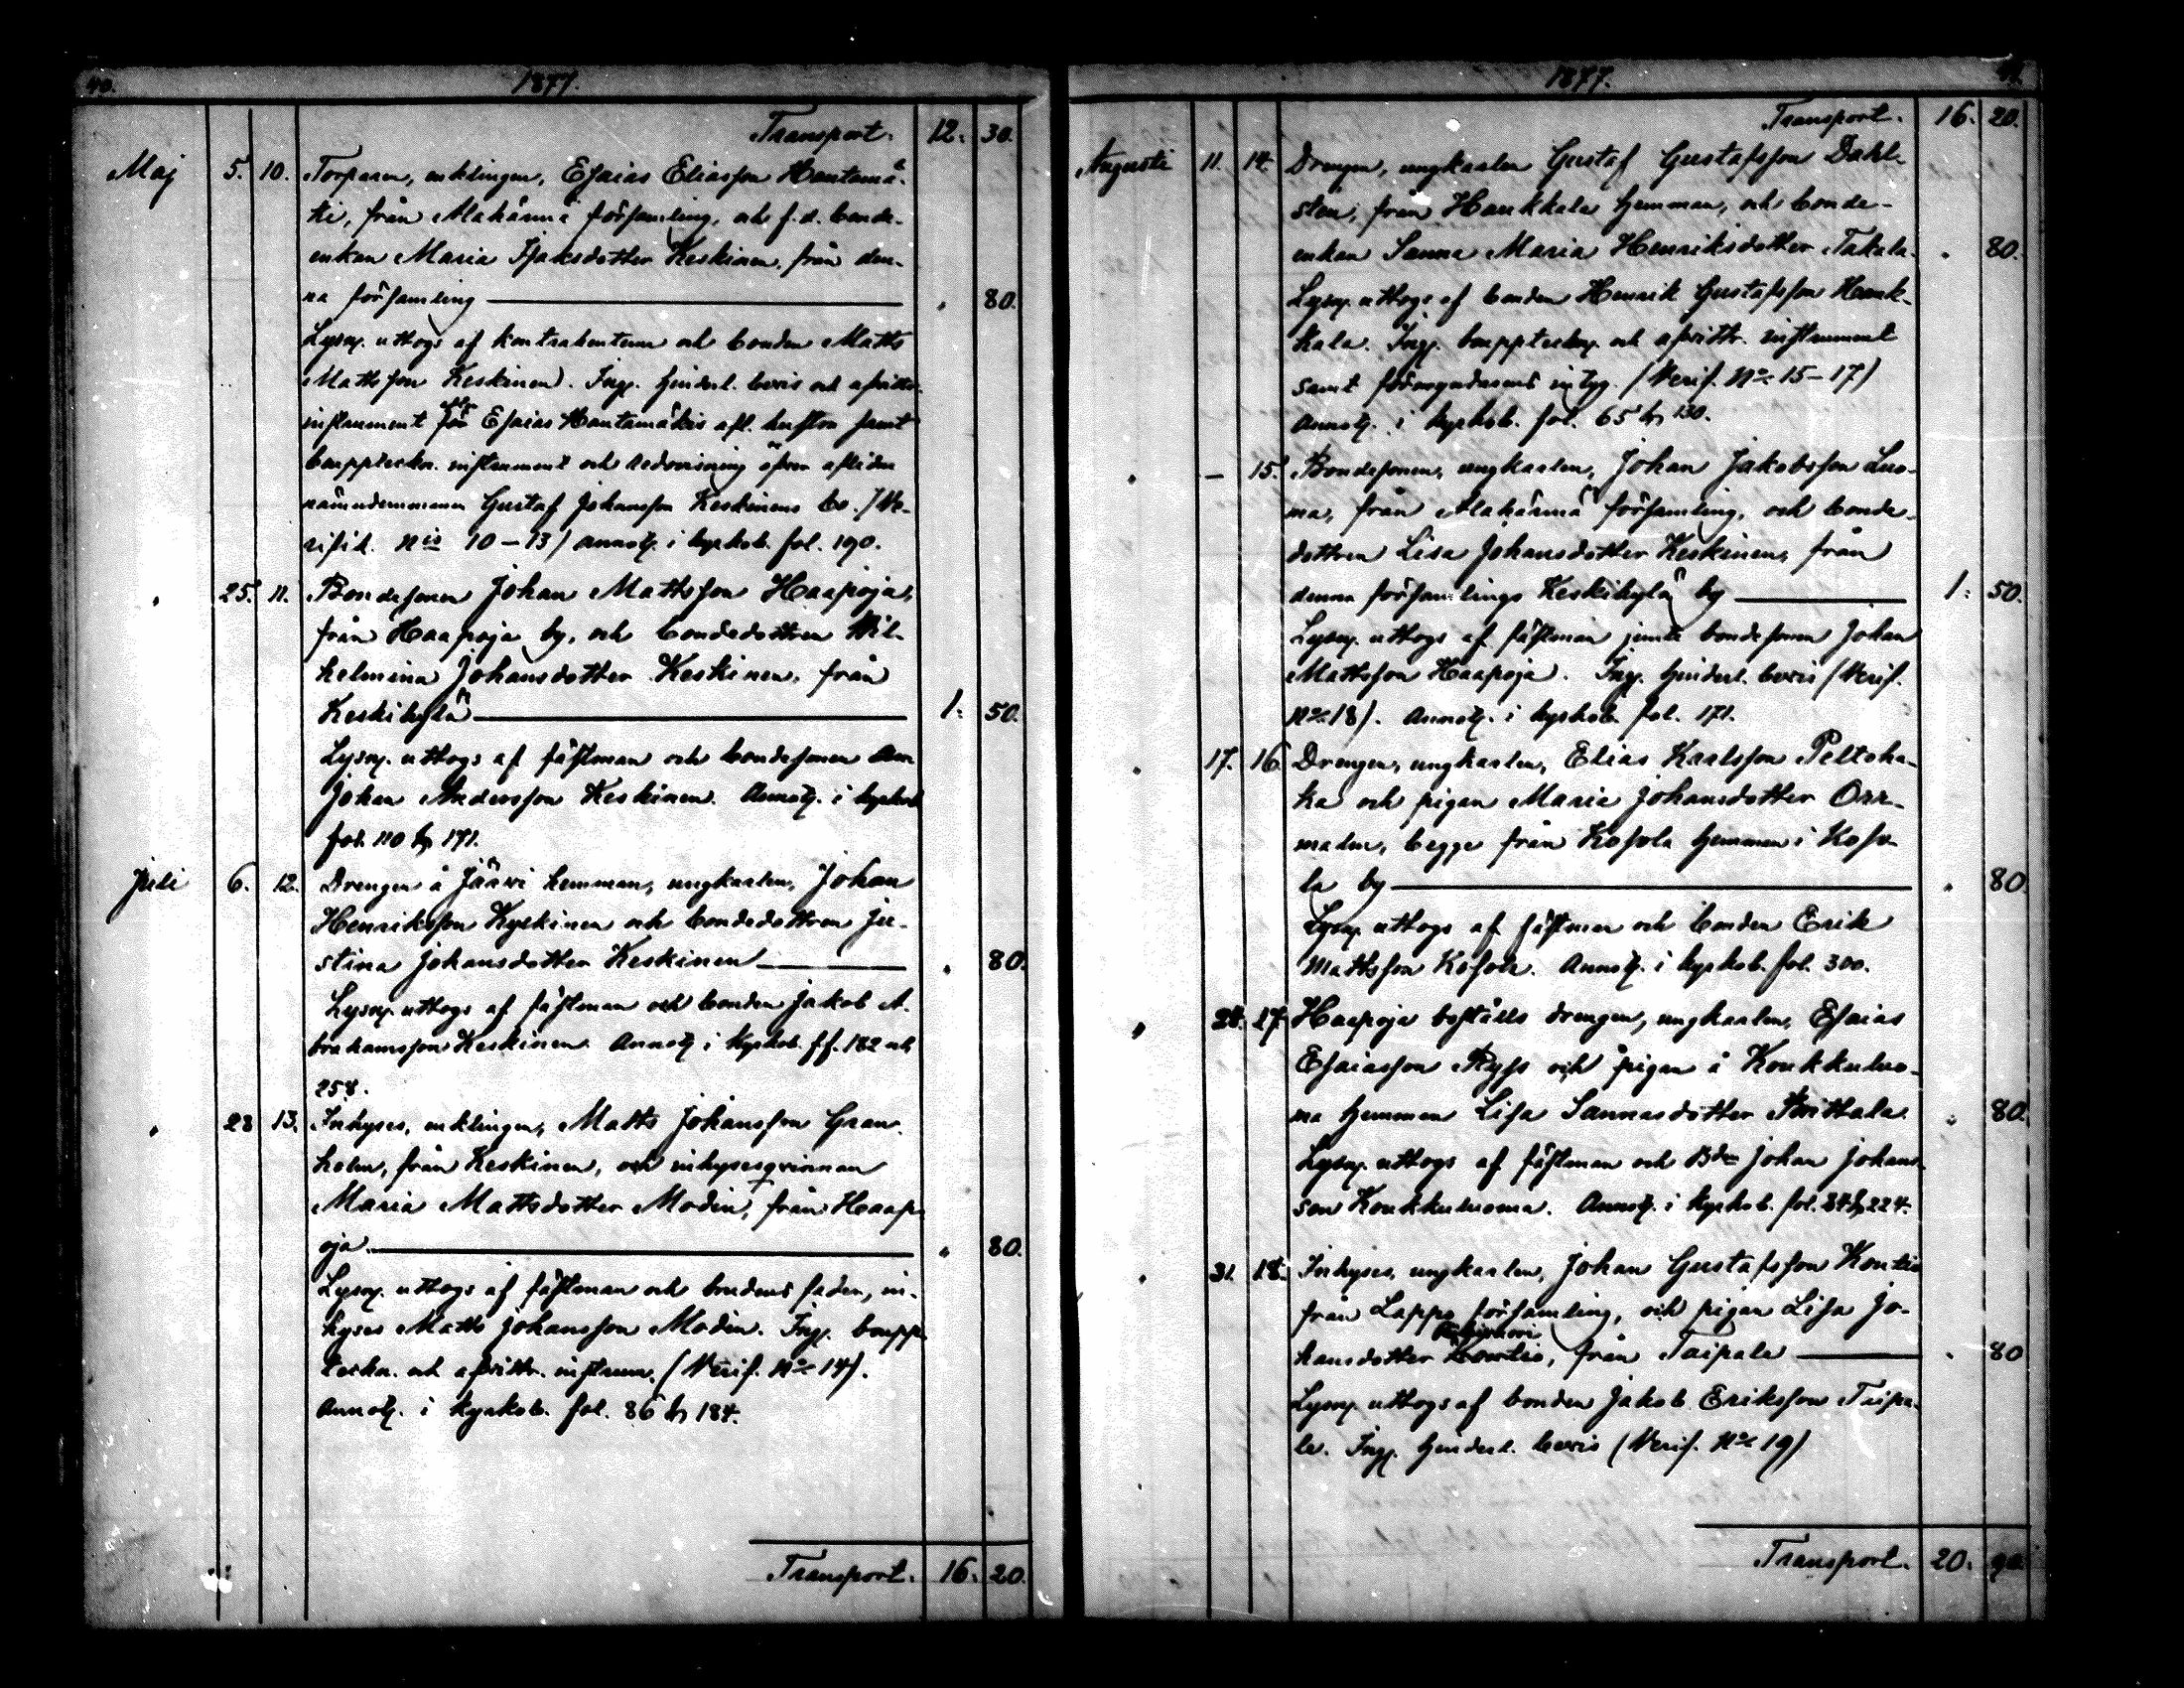 40. 1877.
Transport. 12. 30.
Maj 5. 10. Torparen, enklingen, Esaias Eliasson Hautamä-
ki, från Alahärmä församling, och f.d. bonde-
enkan Maria Isaksdotter Keskinen, från den-
na församling „ 80.
Lysn. uttogs af kontrahenterna och bonden Matts
Mattsson Keskinen. Ing. hinderl. bevis och afvittr.
instrument efter Esaias Hautamäkis afl. hustru samt
bouppteckn. instrument och redovisning öfver aflidne
nämndemannen Gustaf Johansson Keskinens bo. (Ve-
rifik. Nis 10-13) annot. i kyrkob. fol. 190.
„ 25. 11. Bondesonen Johan Mattsson Haapoja,
från Haapoja by, och bondedottren Wil-
helmina Johansdotter Keskinen, från
Keskikylä 1. 50.
Lysn. uttogs af fästman och bondesonen
Johan Andersson Keskinen. Annot. i kyrkob.
fol. 110 & 171.
Juli 6. 12. Drengen å Jääri hemman, ungkarlen, Johan
Henriksson Kyskinen och bondedottren Ju-
stina Johansdotter Keskinen „ 80.
Lysn. uttogs af fästman och bonden Jakob A-
brahamsson Keskinen. Annot. i kyrkob. ff. 182 och
258.
„ 28 13. Inhyses, enklingen, Matts Johansson Gran-
holm, från Keskinen, och inhysesqvinnan
Maria Mattsdotter Modin, från Haap-
oja. „ 80.
Lysn. uttogs af fästman och brudens fader, in-
hyses Matts Johansson Modin. Ing. boupp-
teckn. och afvittr. instrum. (Verif. No 14).
Annot. i kyrkob. fol. 86 & 184.
Transport. 16. 20.
1877. 41.
Transport. 16. 20.
Augusti 11. 14. Drengen, ungkarlen Gustaf Gustafsson Dahl-
sten, från Haukkala hemman, och bonde-
enkan Sanna Maria Henriksdotter Takala. „ 80.
Lysn. uttogs af bonden Henrik Gustafsson Hauk-
kala. Ing. bouppteckn. och afvittr. instrument
samt förmyndarens intyg. (Verif. No 15-17)
Annot. i kyrkob. fol. 65 & 130.
„ — 15. Bondesonen, ungkarlen, Johan Jakobsson Luo-
ma, från Alahärmä församling, och bonde-
dottren Lisa Johansdotter Keskinen, från
denna församlings Keskikylä by 1. 50.
Lysn. uttogs af fästman jemte bondesonen Johan
Mattsson Haapoja. Ing. hinderl. bevis (Verif.
No 18). Annot. i kyrkob. fol. 171.
„ 17. 16. Drengen, ungkarlen, Elias Karlsson Peltoha-
ka och pigan Maria Johansdotter Orr-
maden, begge från Kosola hemman i Koso-
la by „ 80
Lysn. uttogs af fästman och bonden Erik
Mattsson Kosola. Annot. i kyrkob. fol. 300.
„ 24. 17. Haapoja boställs drengen, ungkarlen, Esaias
Esaiasson Ryss och pigan å Koukkuluo-
ma hemman Lisa Sannasdotter „ 80.
Lysn. uttogs af fästman och Bden Johan Johans-
son Koukkuluoma. Annot. i kyrkob. fol. 84 & 224.
„ 31. 18. Inhyses, ungkarlen, Johan Gustafsson Kontio
från Lappo församling, och pigan Lisa Jo-
hansdotter Kontio, från Taipale „ 80
Lysn. uttogs af bonden Jakob Eriksson Taipa-
le. Ing. hinderl. bevis (Verif. No 19)
Transport. 20. 90.